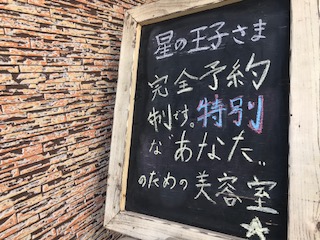 星の王子さま
完全予約
制です。特別
な“あなた”
のための美容室